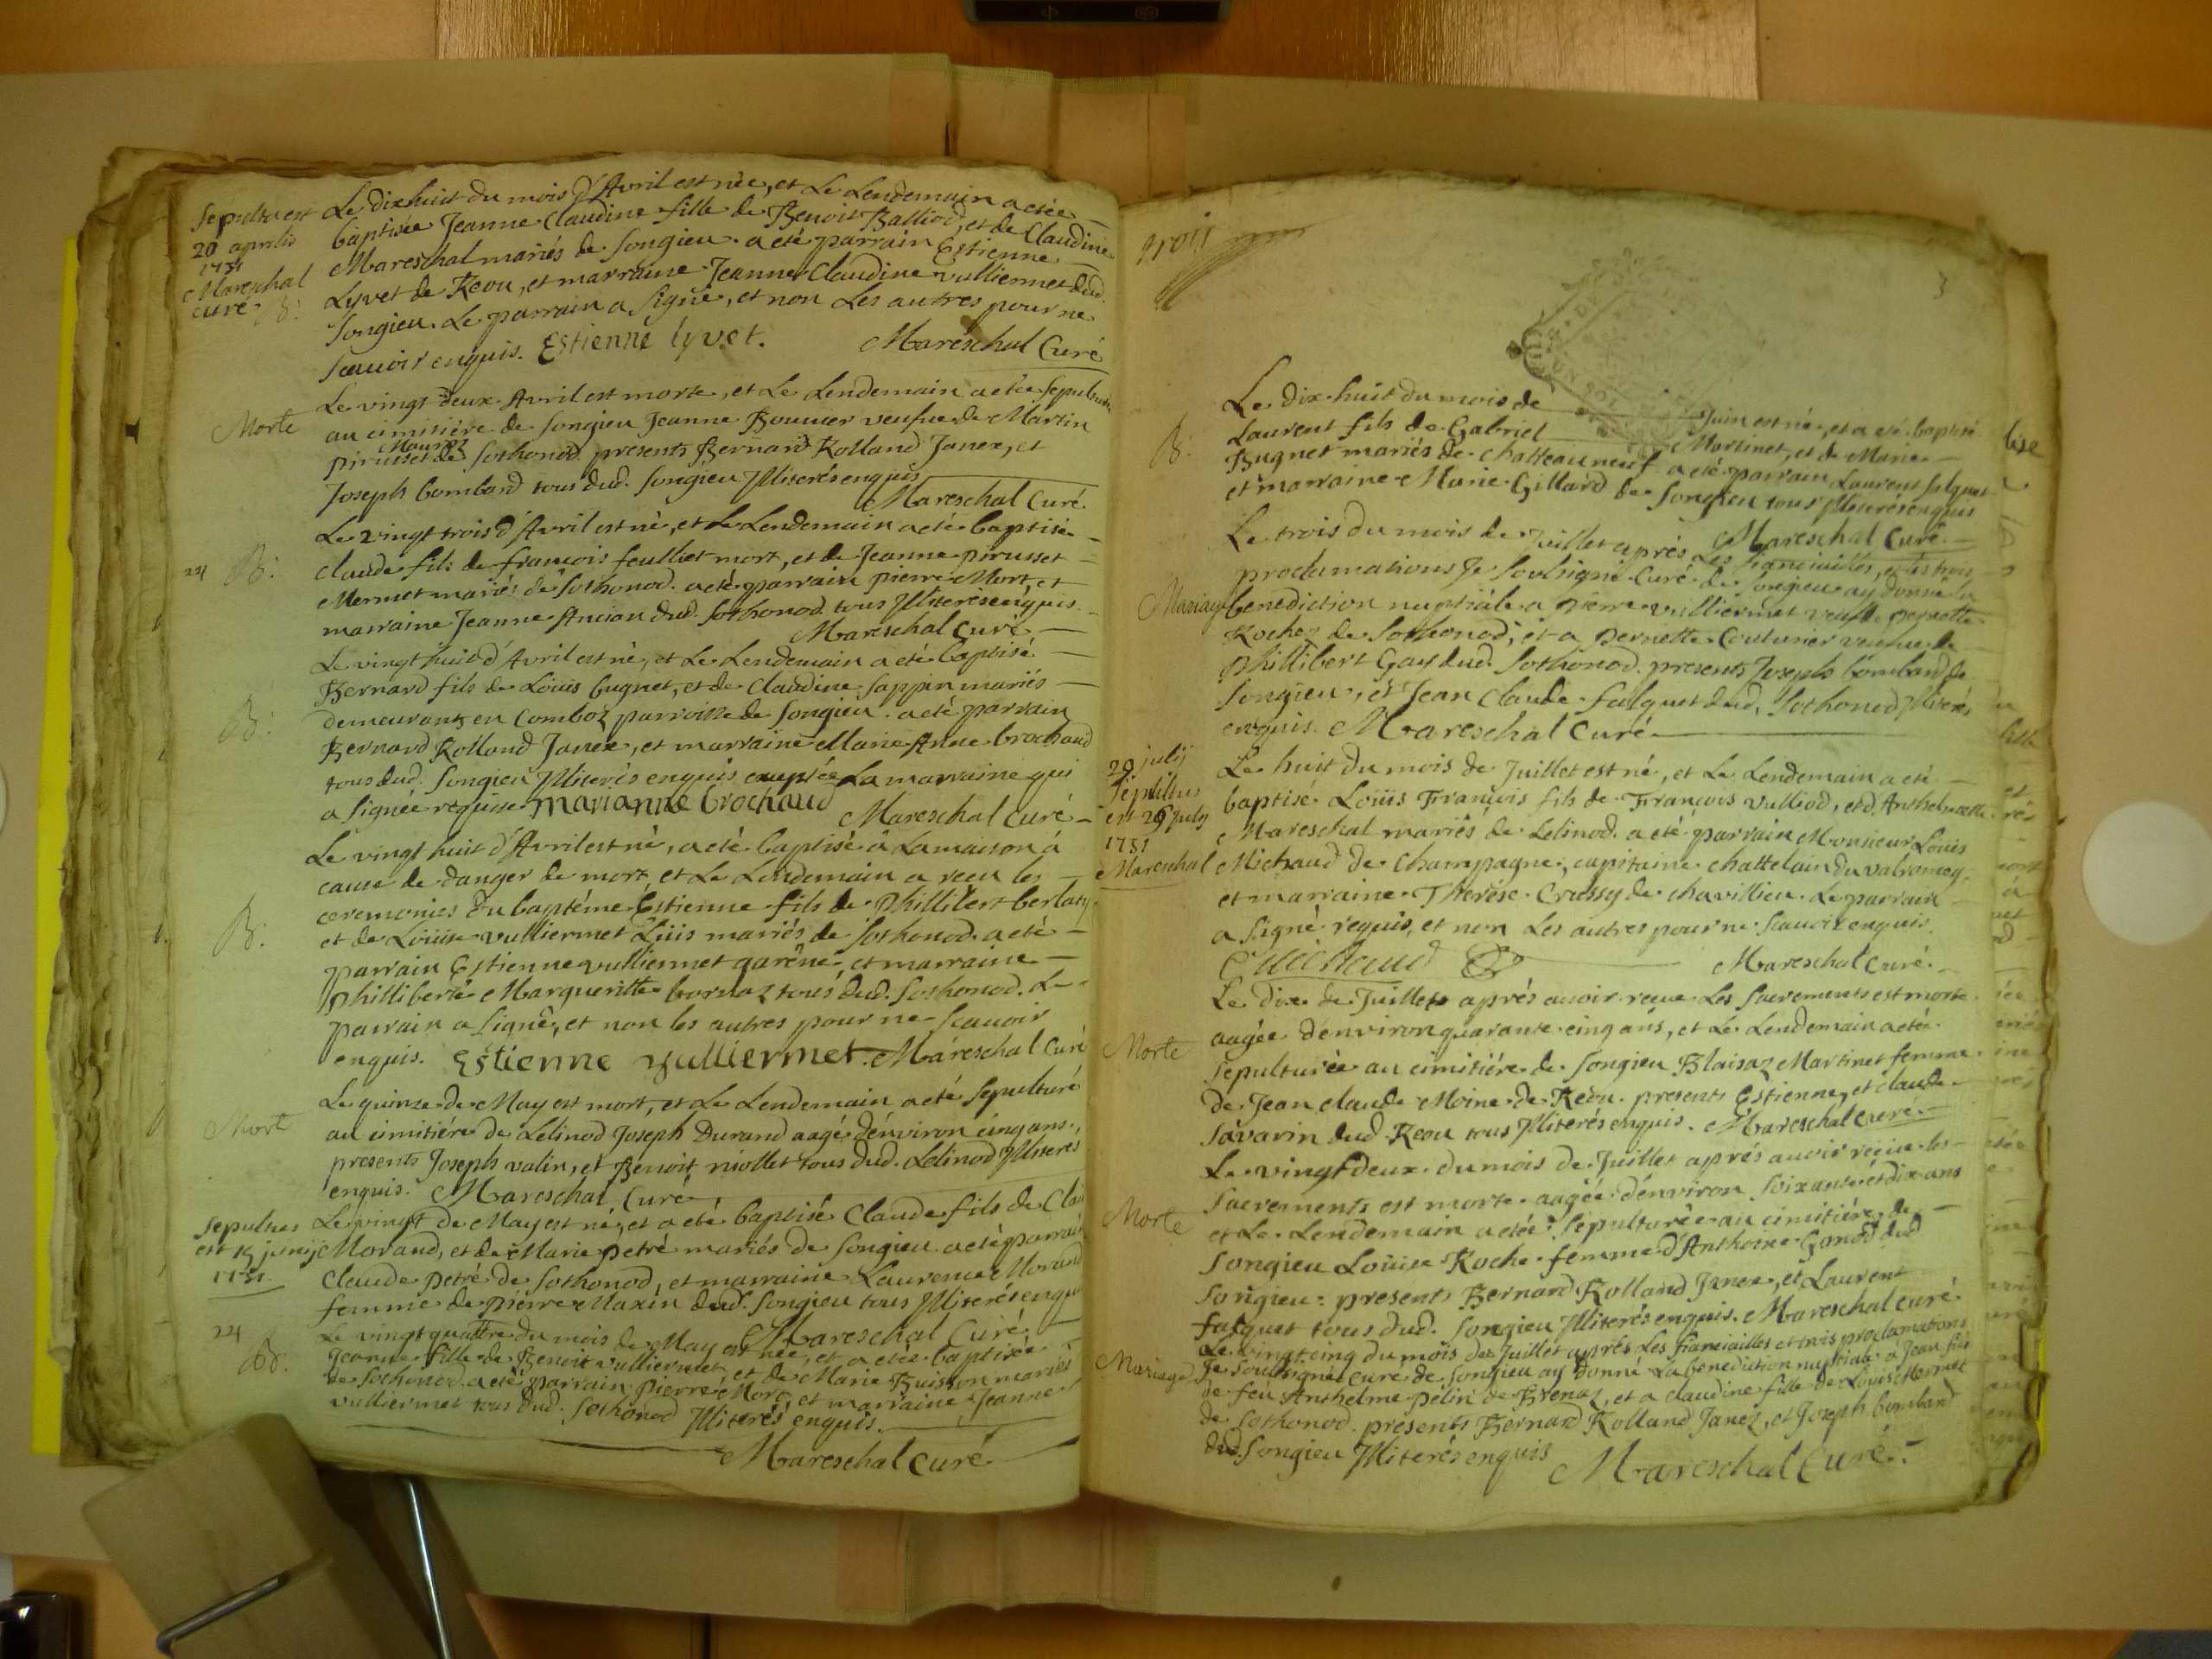 Sepulta est
20 aprilis
1751
Mareschal
curé B:
Le dixhuit du mois d'Avril est née, et Le Lendemain a etée
baptisée Jeanne Claudine fille de Benoit Balliod, et de Claudine
Mareschal mariés de Songieu. a eté parrain Estienne
Lyvet de Reou, et marraine Jeanne Claudine vulliermet dud.
Songieu. Le parrain a signé, et non Les autres pour ne
scauoir enquis. Estienne lyvet. Mareschal Curé
Morte
Le vingt deux Avril est morte, et Le Lendemain a etée sepulturée
au cimitiére de Songieu Jeanne veufue de Martin
pirusset de Sothonod presents Bernard Rolland Janex, et
Joseph bombard tous dud. Songieu Jlliterés enquis
Mareschal Curé.
24 B:
Le vingt trois d'Avril est né, et Le Lendemain a eté baptisé
Claude fils de françois feulliet mort, et de Jeanne pirusset
Mermet mariés de Sothonod. a eté parrain pierre Mort, et
marraine Jeanne Ancian dud. Sothonod. tous Jlliterés enquis.
Mareschal Curé.
B:
Le vingt huit d'Avril est né, et Le Lendemain a eté baptisé
Bernard fils de Loüis bugnet, et de Claudine Sappin mariés
demeurants en Comboz parroisse de Songieu. a eté parrain
Bernard Rolland Janex, et marraine Marie Anne brochaud
tous dud. Songieu Jlliterés enquis exceptée La marraine qui
a signée requise Marianne brochaud Mareschal Curé
B:
Le vingt huit d'Avril est né, a eté baptisé â La maison â
cause de danger de mort, et Le Lendemain a receu les
ceremonies du baptéme Estienne fils de Phillibert berlaty
et de Loüise vulliermet Liiis mariés de Sothonod. a eté
parrain Estienne vulliermet garéne, et marraine
Phillibertè Margueritte bornaz tous dud. Sothonod. Le
parrain a signé, et non les autres pour ne scauoir
enquis. Estienne vulliermet. Mareschal Curé
Mort
Le quinze de May est mort, et Le Lendemain a eté sepulturé
au cimitiére de Lelinod Joseph Durand aagé d'environ cinq ans,
presents Joseph valin, et Benoit niollet tous dud. Lelinod Jlliterés
enquis. Mareschal Curé
Sepultus
est 15 junij
1751.
Le vingt de May est né, et a eté baptisé Claude fils de
Morand, et de Marie petré mariés de Songieu. a eté parrain
Claude petré de Sothonod, et marraine Laurence Morand
femme de pierre Maxin dud. Songieu tous Jlliterés enquis
Mareschal Curé
24
B:
Le vingt quattre du mois de May est née, et a etée baptisée
Jeanne fille de Benoit vulliermet, et de Marie Buisson mariés
de Sothonod. a eté parrain pierre Mort, et marraine Jeanne
vulliermet tous dud. Sothonod Jlliterés enquis.
Mareschal Curé
trois
3
B:
Le dix-huit du mois de Juin est né, et a eté baptisé
Laurent fils de Gabriel Martinet, et de Marie
Bugnet mariés de Chatteauneuf a eté parrain Laurent falquet
et marraine Marie Gillard de Songieu tous Jlliterés enquis
Mareschal Curé
Mariage
Le trois du mois de Juillet aprés Les fianciailles, et les trois
proclamations Je soubsigné Curé de Songieu ay donné la
benediction nuptiale a pierre vulliermet veuf de pernette
Rochez de Sothonod, et a pernette Couturier veufue de
Phillibert Gay dud. Sothonod. presents Joseph bombard de
Songieu, et Jean Claude falquet dud. Sothonod Jlliterés
enquis. Mareschal Curé
29 julij
Sepultus
est 29 july
1751
Mareschal
Le huit du mois de Juillet est né, et Le Lendemain a eté
baptisé Loüis François fils de François vulliod, et d'Anthelmette
Mareschal mariés de Lelinod. a eté parrain Monsieur Louis
Michaud de Champagne, capitaine chattelain du valromey,
et marraine Therése Crussy de chavillieu. Le parrain
a signé requis, et non Les autres pour ne scauoir enquis.
Michaud Mareschal Curé.
Morte
Le dix de Juillet aprés auoir receue Les sacrements est morte
aagée d'environ quarante cinq ans, et Le Lendemain a etée
sepulturée au cimitiére de Songieu Blaisaz Martinet femme
de Jean Claude Moine de Reou. presents Estienne, et claude
savarin dud. Reou tous Jlliterés enquis. Mareschal Curé.
Morte
Le vingt deux du mois de Juillet aprés auoir reçeue les
sacrements est morte aagée d'environ soixante et dix ans
et Le Lendemain a etée sepulturée au cimitiére de
Songieu Loüise Roche femme d'Anthoine Gonod dud
Songieu: presents Bernard Rolland Janex, et Laurent
falquet tous dud. Songieu Jlliterés enquis. Mareschal Curé.
Mariage
Le vingt cinq du mois de Juillet aprés Les fianciailles et trois proclamations
Je soubsigné curé de Songieu ay donné La benediction nuptiale a Jean fils
de feu Anthelme Pélin de Brenaz, et a claudine fille de Louis Mermet
de Sothonod. presents Bernard Rolland Janez, et Joseph bombard
dud. Songieu Jlliterés enquis Mareschal Curé.